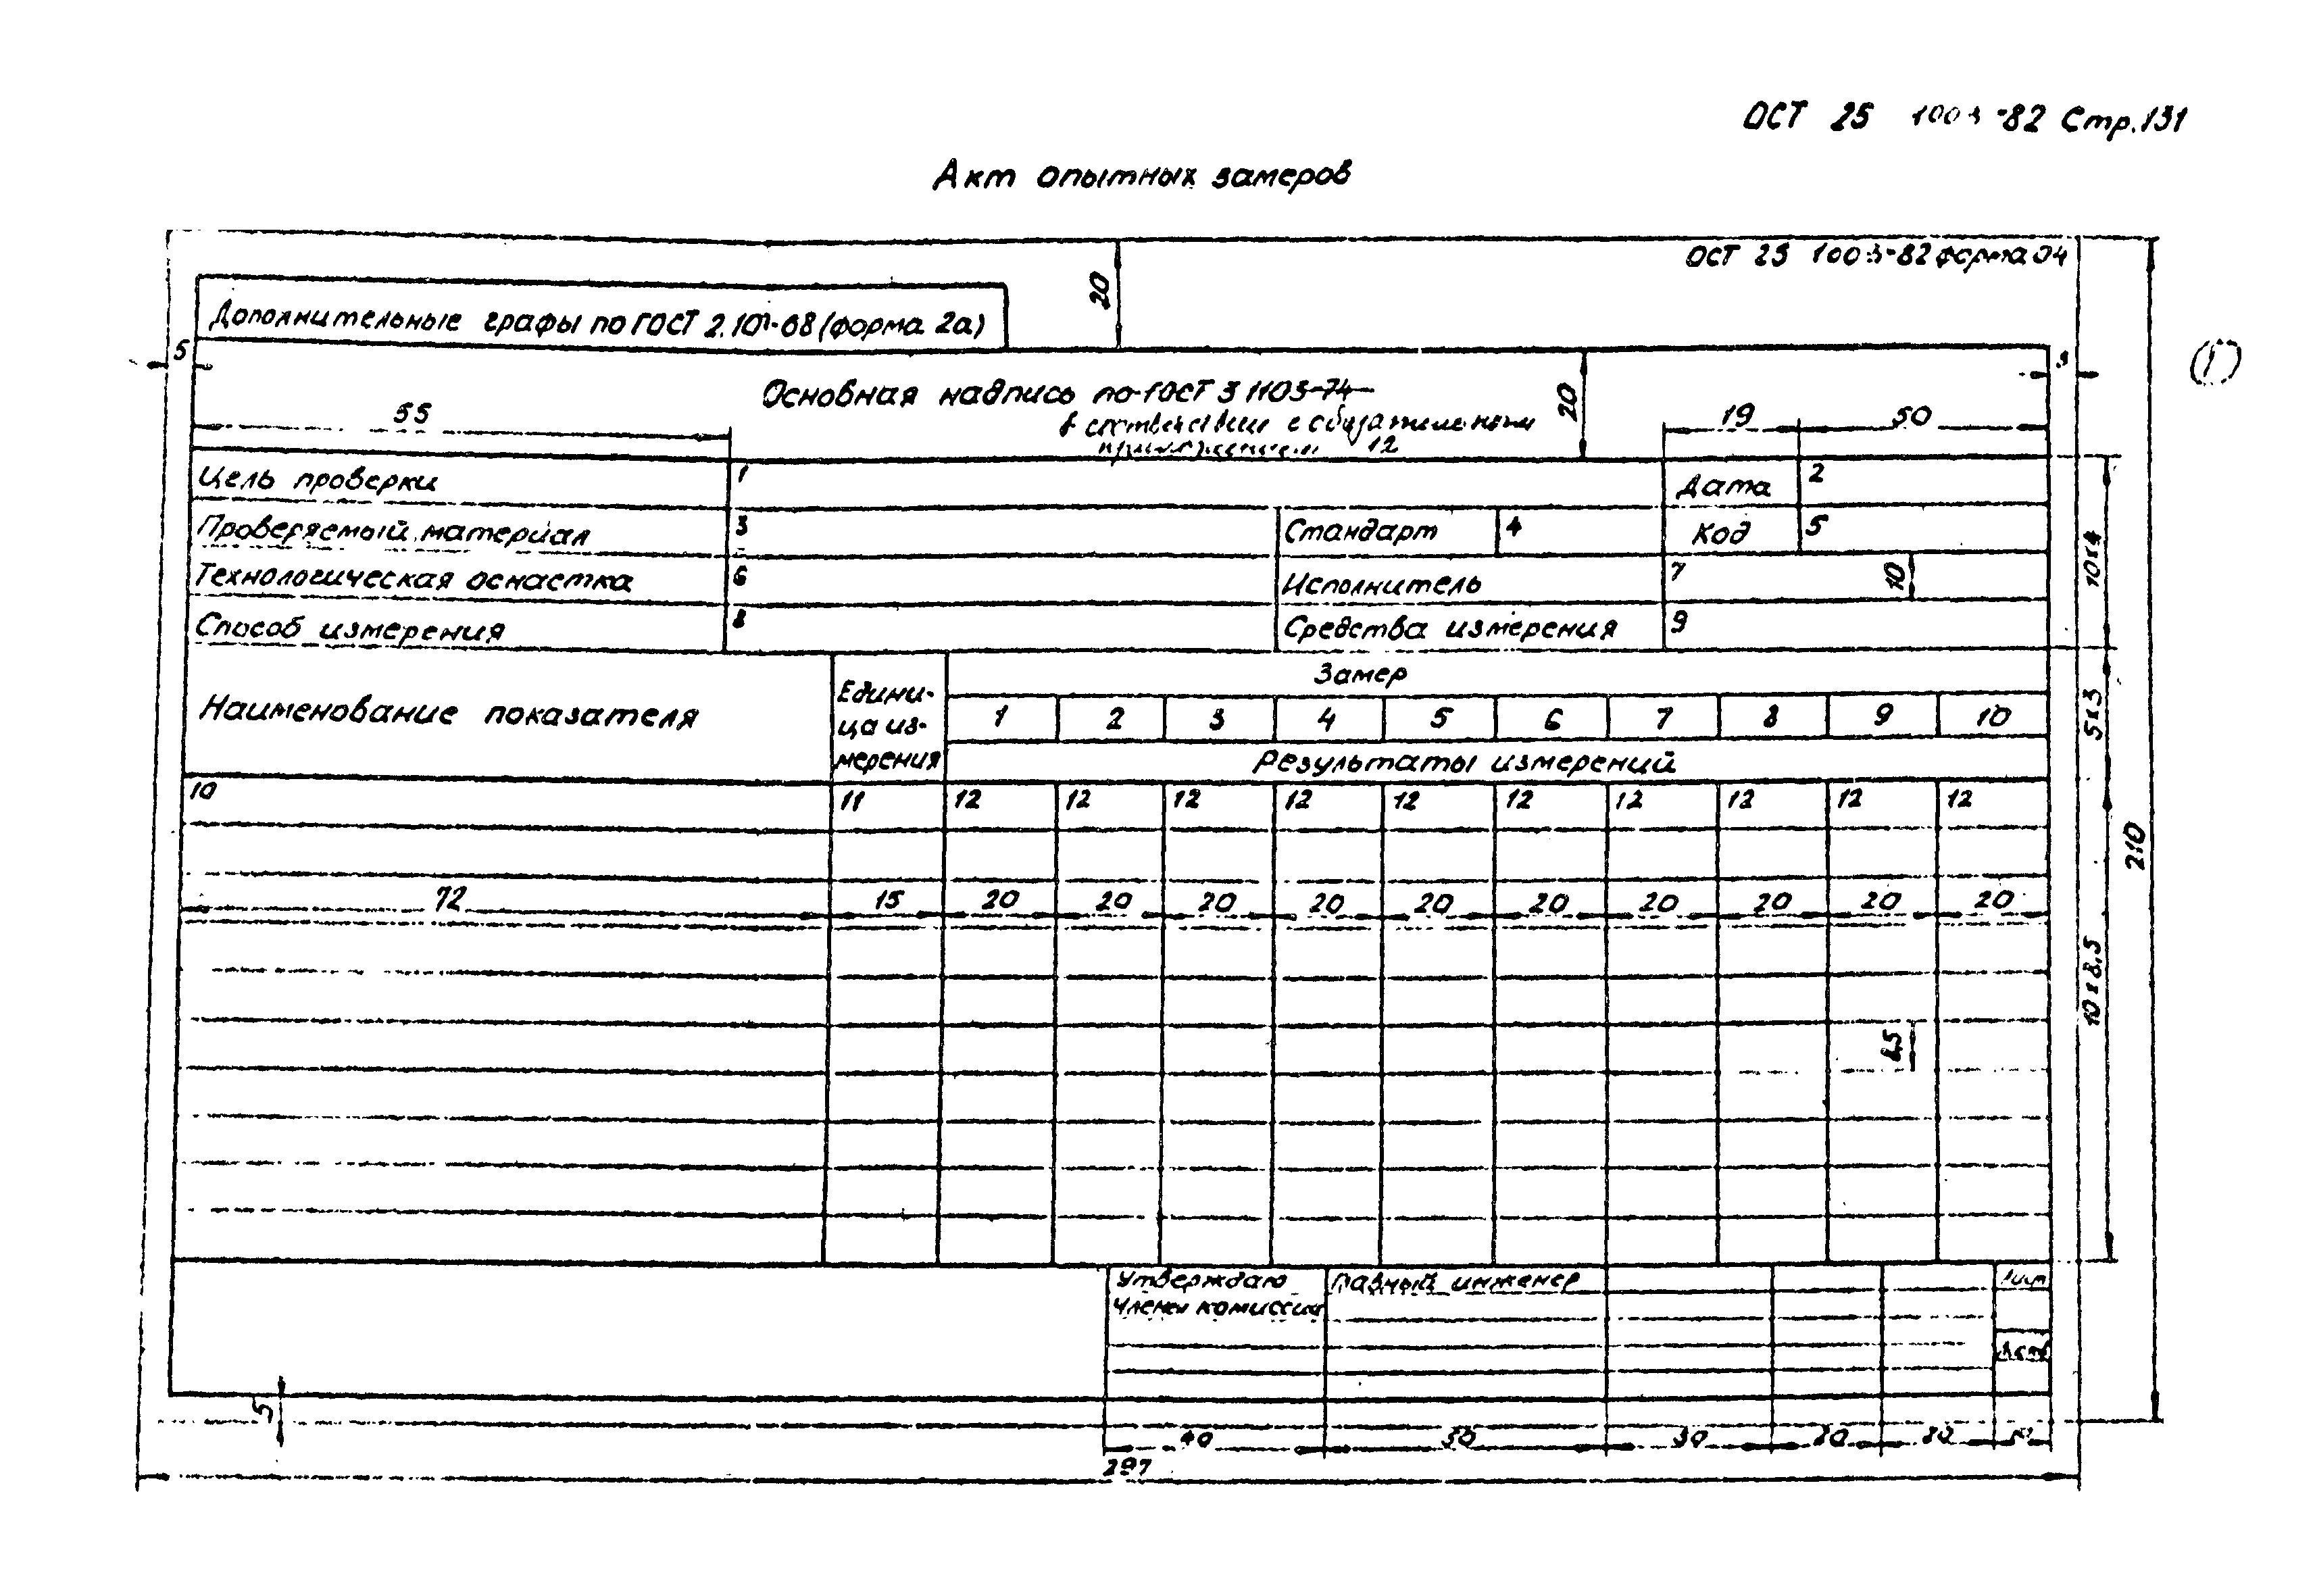 ОСТ 25 1003-82 Стр.131
Акт опытных замеров
ОСТ 25 1003-82 форма 04
20
Дополнительные графы по ГОСТ 2.104-68 (форма 2а)
5
Основная надпись по ГОСТ 3 1103-74
в соответствии с обязательным
приложением 12
55
20
19
50
Цель проверки 1 Дата 2
Проверяемый материал 3 Стандарт 4 Код 5
Технологическая оснастка 6 Исполнитель 7 10
Способ измерения 8 Средства измерения 9
10х4
Наименование показателя
Едини-
ца из-
мерения
Замер
1 2 3 4 5 6 7 8 9 10
Результаты измерений
5х3
10 11 12 12 12 12 12 12 12 12 12 12
210
72 15 20 20 20 20 20 20 20 20 20 20
10х8,5
8,5
Утверждаю Главный инженер Лист
Члены комиссии
5
40 50 30 20 20
297